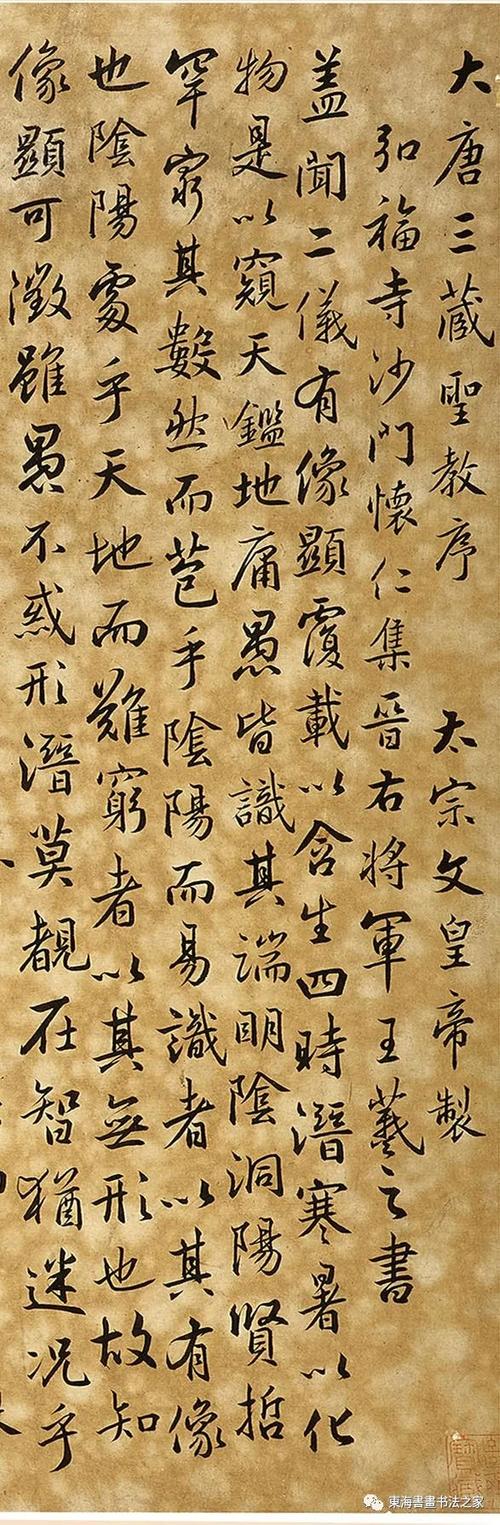 大唐三蔵聖教序 太宗文皇帝製
弘福寺沙門懐仁集晉右將軍王羲之書
盖聞二儀有像顯覆載以含生四時潛寒暑以化
物是以窺天鑑地庸愚皆識其端明陰洞陽賢哲
罕窮其數然而苞乎陰陽而易識者以其有像
也陰陽處乎天地而難窮者以其無形也故知
像顯可徵雖愚不惑形潛莫覩在智猶迷况乎
東海書畫书法之家